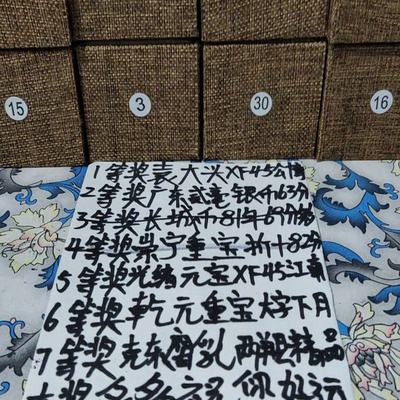 15 3 30 16
1等奖袁大头XF45公博
2等奖广东武毫银币63分
3等奖长城币815
4等奖崇宁重宝折十82分
5等奖光绪元宝XF45江南
6等奖乾元重宝大字下月
7等奖克东腐乳两罐精品